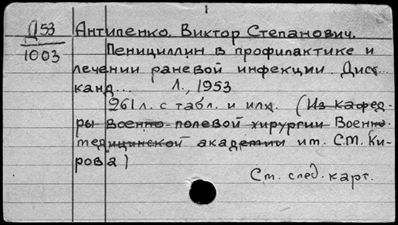 Д 53
1003
Антипенко, Виктор Степанович.
Пенициллин в профилактике и
лечении раневой инфекции. Дисс...
канд... Л., 1953
261 л. с табл. и илл. (Из кафед-
ры Военно-полевой хирургии Военно-
медицинской академии им. С.М. Ки-
рова)
См. след. карт.